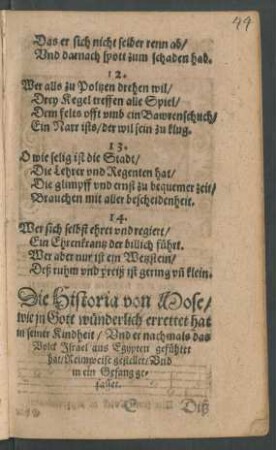 99
Das er sich nicht selber renn ab/
Vnd darnach spott zum schaden hab.
12.
Wer alls zu Poltzen drehen wil/
Drey Kegel treffen alle Spiel/
Dem felts offt vmb ein Bawrenschuch/
Ein Narr ists/ der wil sein zu klug.
13.
O wie selig ist die Stadt/
Die Lehrer vnd Regenten hat/
Die glimpff vnd ernst zu bequemer zeit/
Brauchen mit aller bescheidenheit.
14.
Wer sich selbst ehret vnd regiert/
Ein Ehrenkrantz der billich führt.
Wer aber nur ist ein Wetzstein/
Deß ruhm vnd preiß ist gering vñ klein.
Die Historia von Mose/
wie jn Gott wünderlich errettet hat
in seiner Kindheit/ Vnd er nachmals das
Volck Israel aus Egypten geführet
hat/ Reimweise gestellet/ Vnd
in ein Gesang ge-
fasset.
C Diß